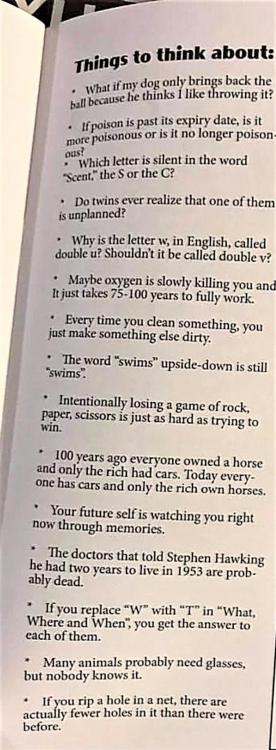 Things to think about:
* What if my dog only brings back the
ball because he thinks I like throwing it?
* If poison is past its expiry date, is it
more poisonous or is it no longer poison-
ous?
* Which letter is silent in the word
"Scent," the S or the C?
* Do twins ever realize that one of them
is unplanned?
* Why is the letter w, in English, called
double u? Shouldn't it be called double v?
* Maybe oxygen is slowly killing you and
It just takes 75-100 years to fully work.
* Every time you clean something, you
just make something else dirty.
* The word "swims" upside-down is still
"swims".
* Intentionally losing a game of rock,
paper, scissors is just as hard as trying to
win.
* 100 years ago everyone owned a horse
and only the rich had cars. Today every-
one has cars and only the rich own horses.
* Your future self is watching you right
now through memories.
* The doctors that told Stephen Hawking
he had two years to live in 1953 are prob-
ably dead.
* If you replace "W" with "T" in "What,
Where and When", you get the answer to
each of them.
* Many animals probably need glasses,
but nobody knows it.
* If you rip a hole in a net, there are
actually fewer holes in it than there were
before.